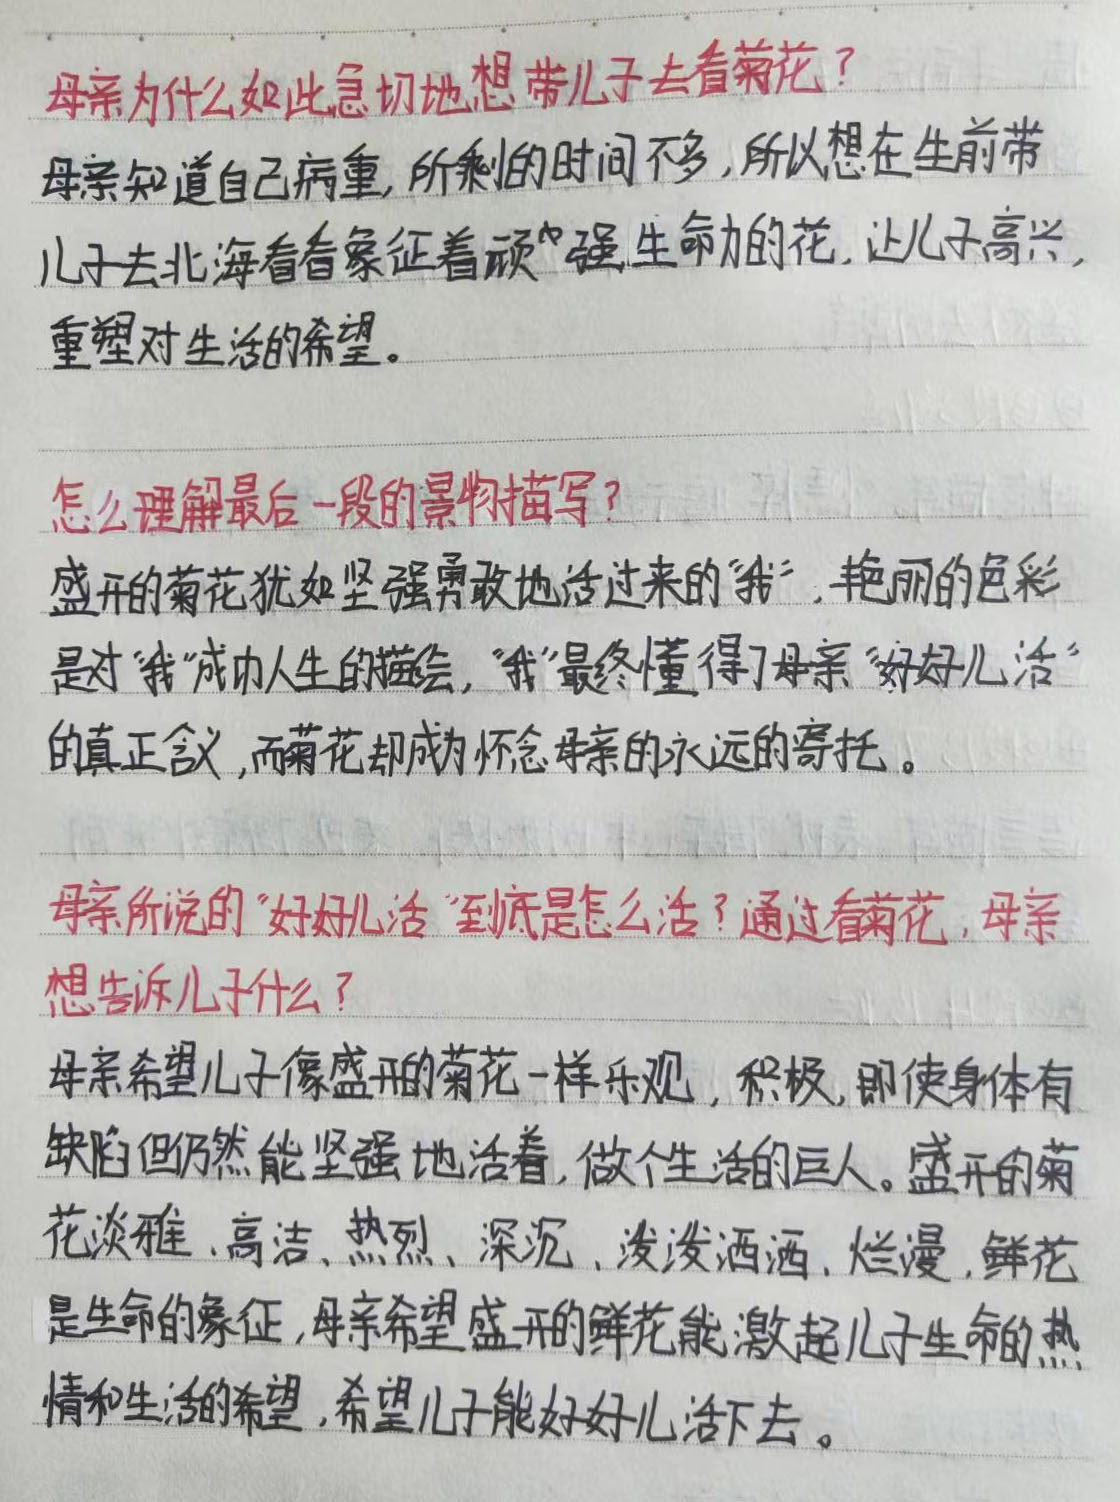 母亲为什么如此急切地想带儿子去看菊花？
母亲知道自己病重，所剩的时间不多，所以想在生前带
儿子去北海看看象征着顽强生命力的花，让儿子高兴，
重塑对生活的希望。
怎么理解最后一段的景物描写？
盛开的菊花犹如坚强勇敢地活过来的“我”，艳丽的色彩
是对“我”成功人生的描绘，“我”最终懂得了母亲“好好儿活”
的真正含义，而菊花却成为怀念母亲的永远的寄托。
母亲所说的“好好儿活”到底是怎么活？通过看菊花，母亲
想告诉儿子什么？
母亲希望儿子像盛开的菊花一样乐观，积极，即使身体有
缺陷但仍然能坚强地活着，做个生活的巨人。盛开的菊
花淡雅、高洁、热烈、深沉、泼泼洒洒、烂漫，鲜花
是生命的象征，母亲希望盛开的鲜花能激起儿子生命的热
情和生活的希望，希望儿子能好好儿活下去。